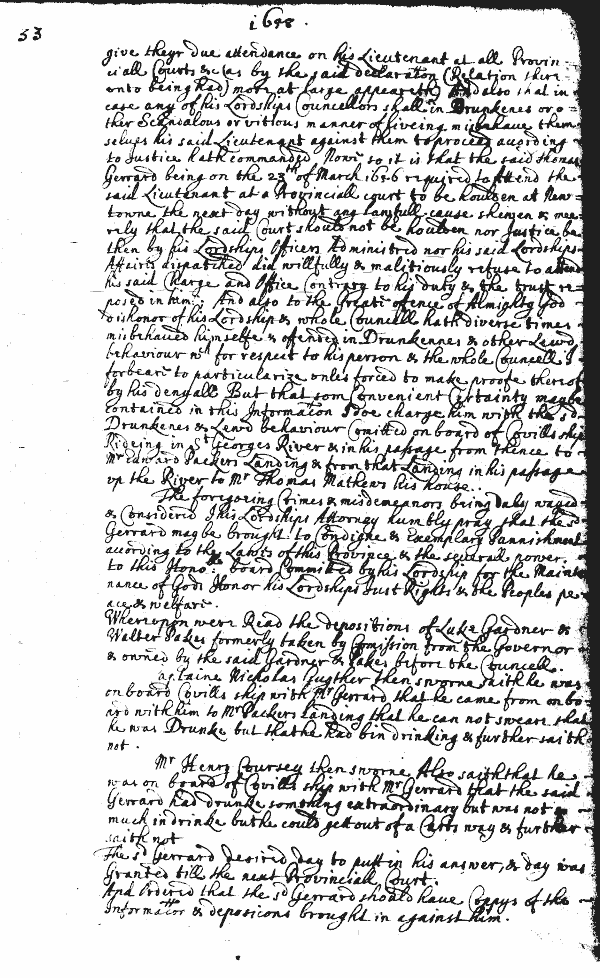 1658.
53
give theyr due attendance on his Lieutenant at all Provin=
ciall Courts &c (as by the said declaration (Relation there
unto being had) more at large appeareth) And also that in
case any of his Lordships Councellors shall in Drunkenes or o=
ther Scandalous or vitious manner of liveing misbehave them
selves his said Lieutenant against them to proceed according
to Justice hath commanded Now so it is that the said Thomas
Gerrard being on the 23th of March 1656 required to Attend the
said Lieutenant at a Provinciall court to be houlden at New
towne the next day without any lawfull cause shewen & mee
rely that the said Court should not be houlden nor Justice be
then by his Lordships Officers Administred nor his said Lordships
Affairs dispatched did willfully & malitiously refuse to attend
his said Charge and Office Contrary to his duty & the trust re=
posed in him; And also to the Greate ofence of Almighty God
dishonor of his Lordship & whole Councell hath diverse times
misbehaved himselfe & offended in Drunkennes & other Lewd
behaviour wch for respect to his person & the whole Councell I
forbeare to particularize unles forced to make proofe thereof
by his denyall But that som Convenient Certainty maybe
contained in this Information I doe charge him with the sd
Drunkenes & Lewd behaviour Comitted on board of Covills ship
Rideing in St Georges River & in his passage from thence to
Mr Edward Packers Landing & from that Landing in his passage
up the River to Mr Thomas Mathews his house.
The foregoeing Crimes & misdemeanors being duly wayed
& Considered I his Lordships Attorney humbly pray that the sd
Gerrard may be brought to Condigne & Exemplary Punnishment
according to the Lawes of this Province & the severall power
to this Honoble board Committed by his Lordship for the Mainte
nance of Gods Honor his Lordships Just Rights & the Peoples pe
ace & welfare.
Whereupon were Read the depositions of Luke Gardner &
Walter Pakes formerly taken by Comission from the Governor
& owned by the said Gardner & Pakes before the Councell.
Captaine Nicholas Gugther then sworne saith he was
on board Covills ship with Mr Gerrard that he came from on bo
ard with him to Mr Packers Landing that he can not sweare that
he was Drunke but that he had bin drinking & further saith
not.
Mr Henry Coursey then sworne Also saith that he
was on board of Covills ship with Mr Gerrard that the said
Gerrard had drunke something extraordinary but was not so
much in drinke but he could gett out of a Carts way & further
saith not
The sd Gerrard desired day to putt in his answer, & day was
Granted till the next Provinciall Court.
And Ordered that the sd Gerrard should have Coppys of the
Information & deposicons brought in against him.